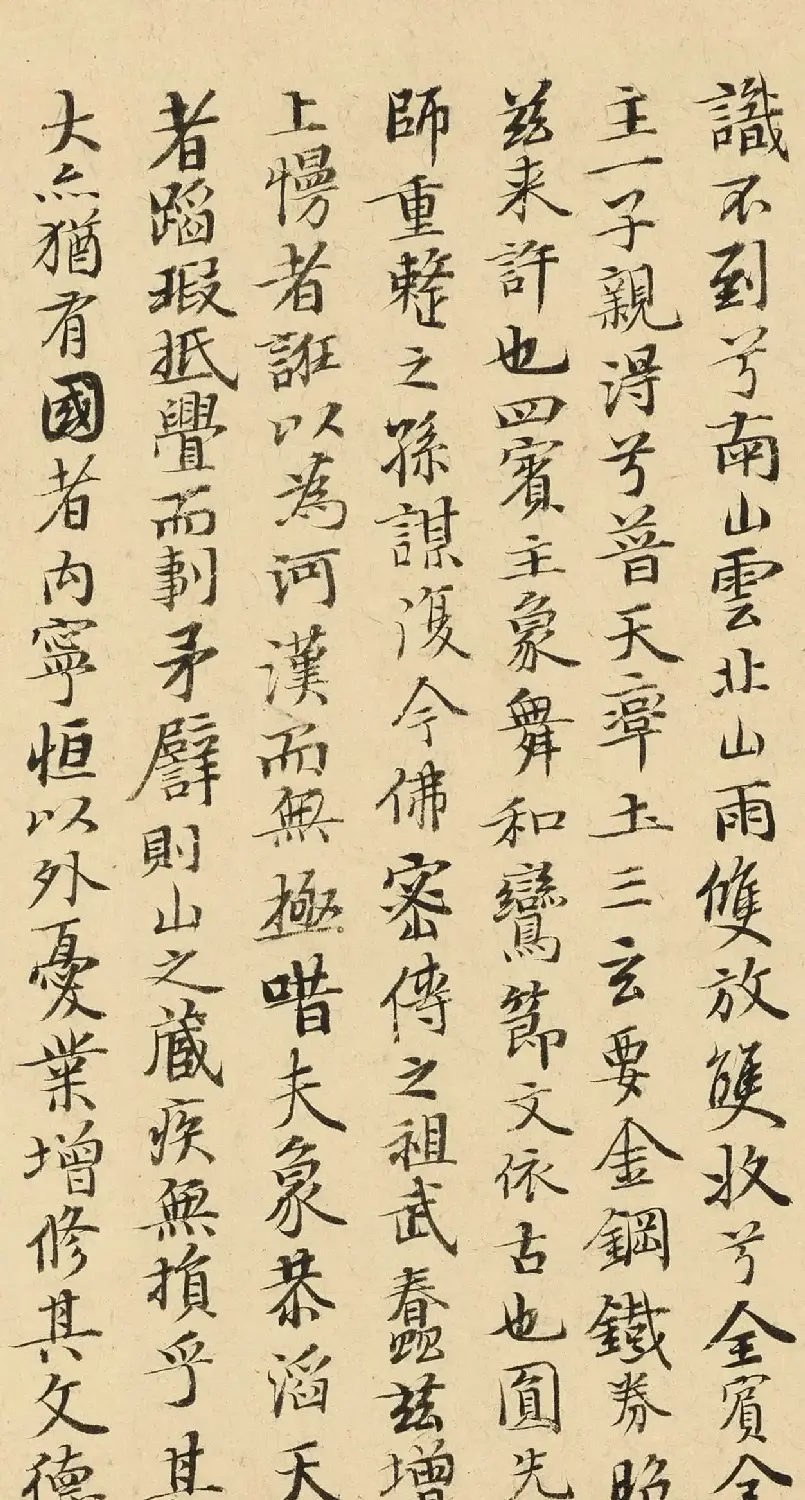 識不到兮南山雲北山雨雙放雙收兮全賓全
主一子親得兮普天率土三玄要金鋼鐵券昭
兹来許也四賓主象舞和鸞節文依古也圓先
師重整之孫謀復今佛密傳之祖武蠢兹增
上慢者誑以為河漢而無極唶夫象恭滔天
者蹈瑕抵舋而剚矛譬則山之蔵疾無損乎其
大亦猶有國者内寧恒以外憂業增修其文德